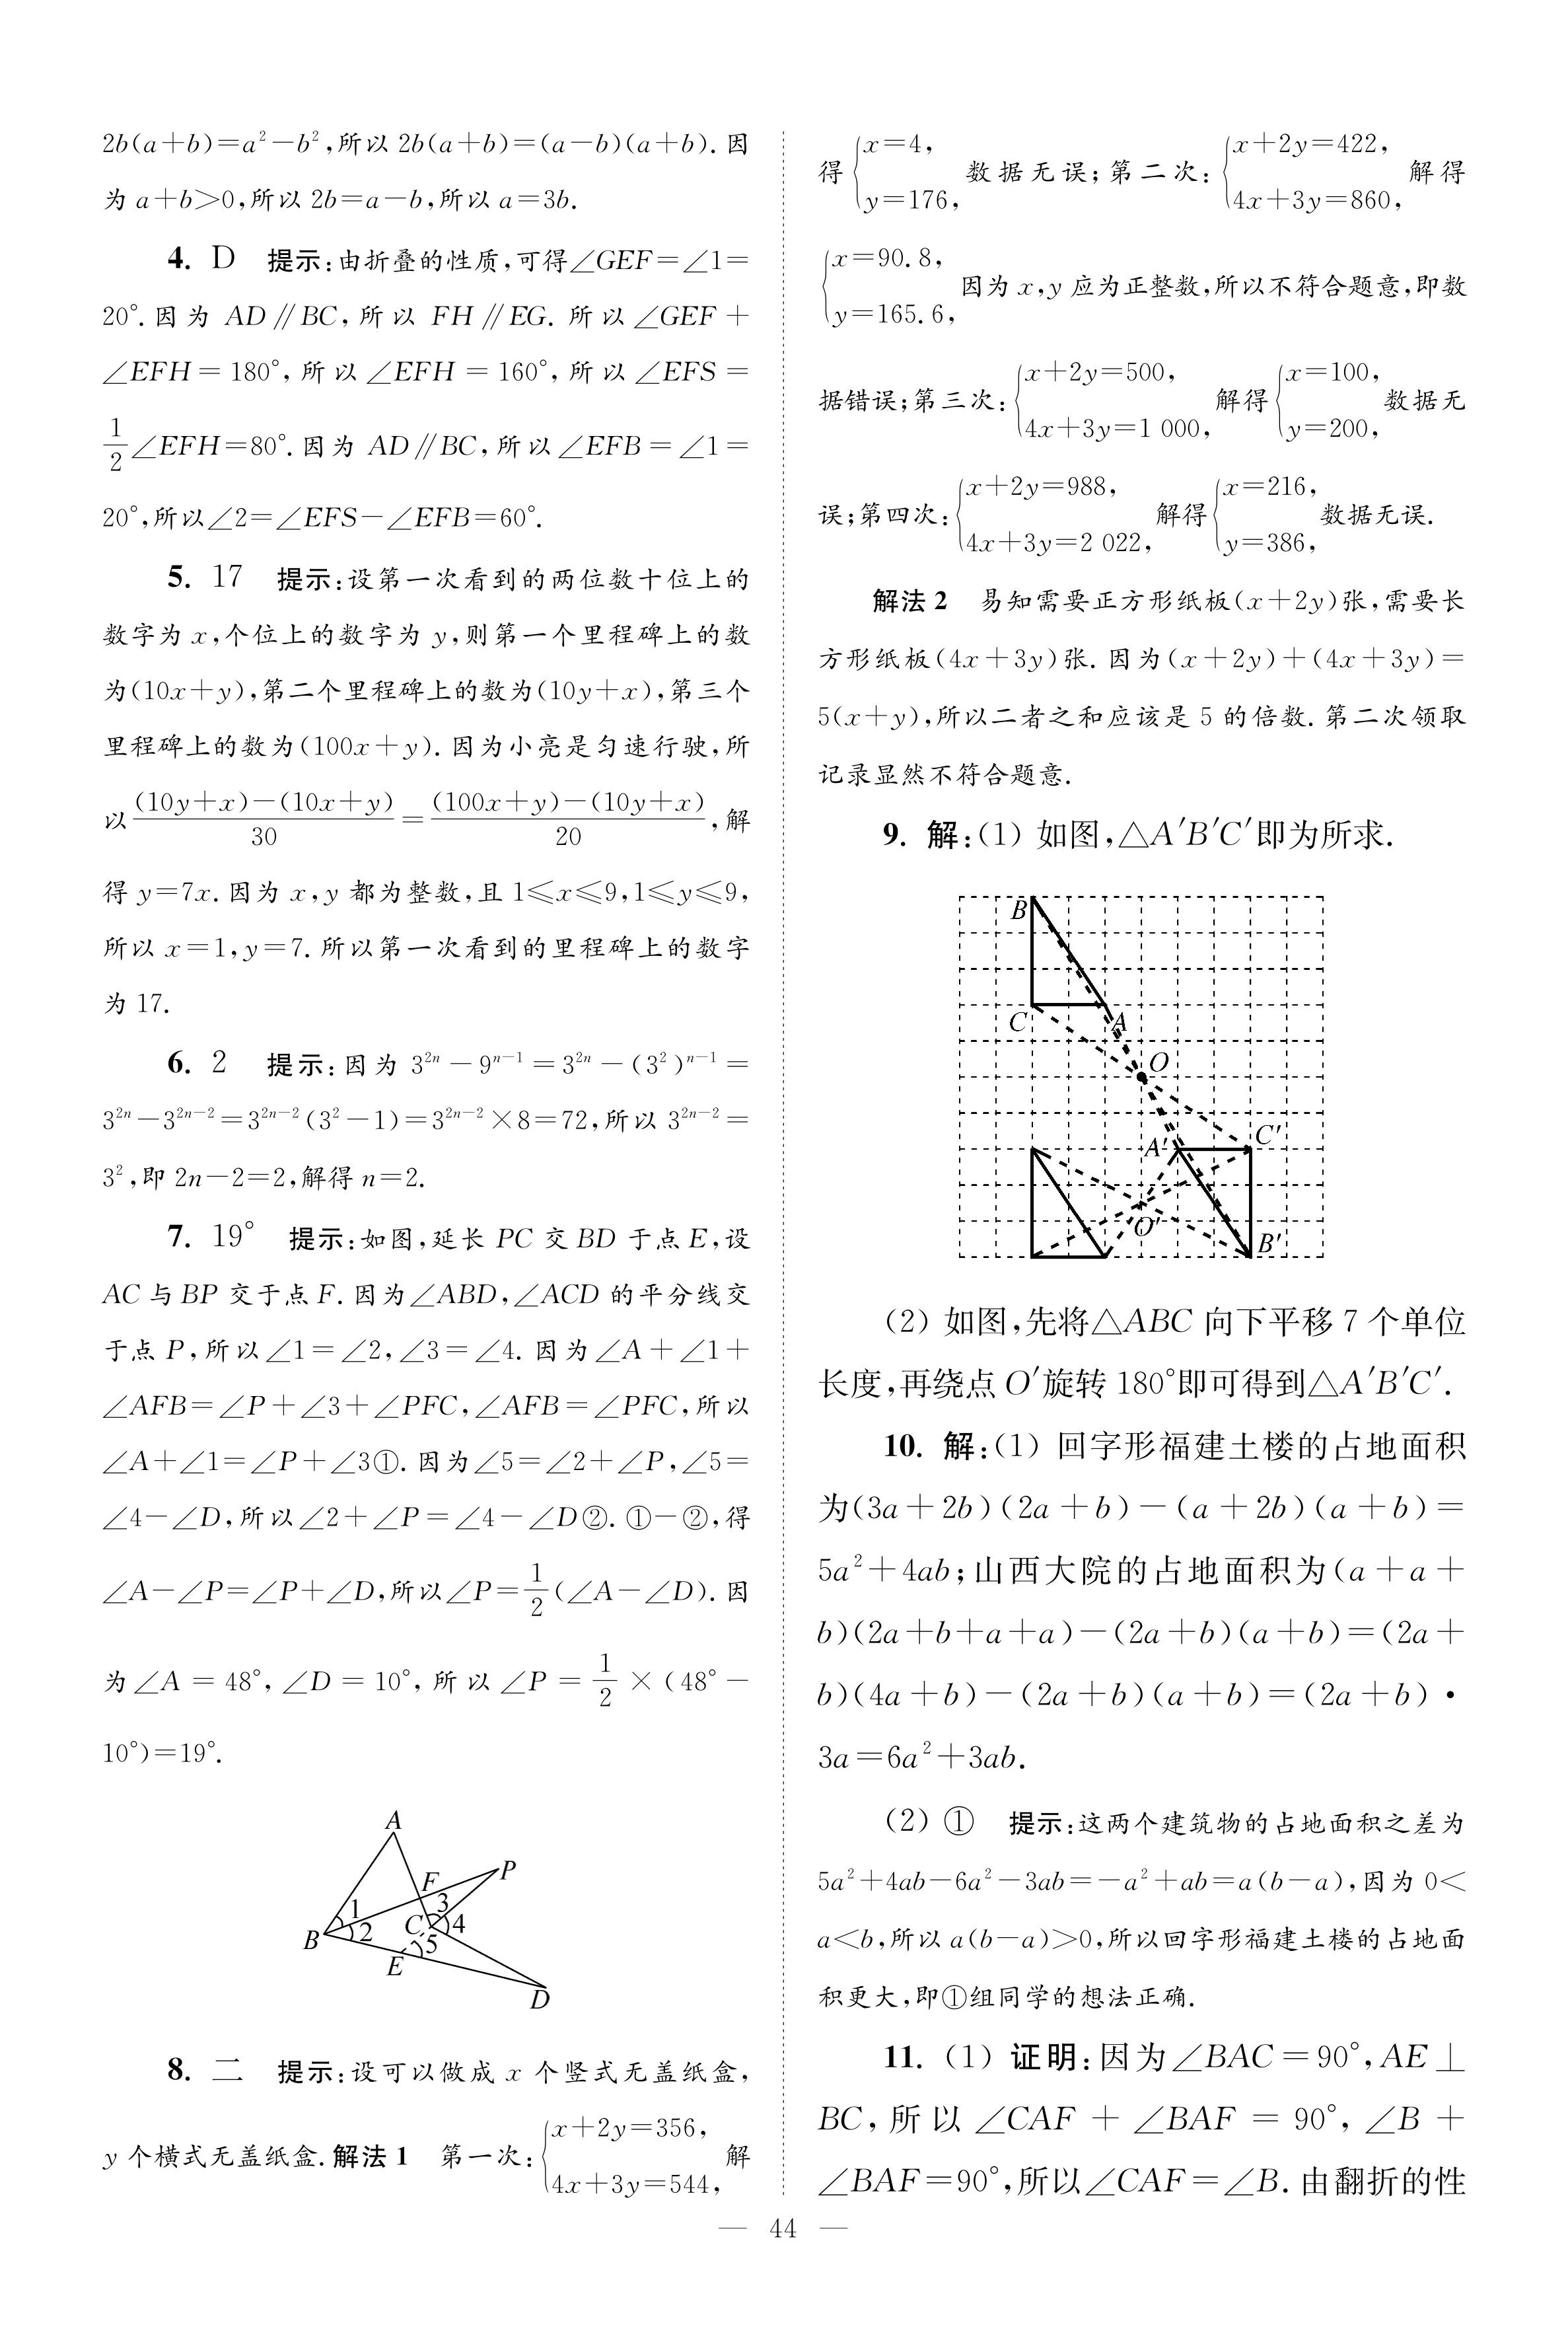 2b(a+b)=a²-b²,所以 2b(a+b)=(a-b)(a+b).因
为 a+b>0,所以 2b=a-b,所以 a=3b.
4. D 提示:由折叠的性质,可得∠GEF=∠1=
20°.因为 AD∥BC,所以 FH∥EG.所以∠GEF+
∠EFH=180°,所以∠EFH=160°,所以∠EFS=
1/2∠EFH=80°.因为 AD∥BC,所以∠EFB=∠1=
20°,所以∠2=∠EFS-∠EFB=60°.
5. 17 提示:设第一次看到的两位数十位上的
数字为 x,个位上的数字为 y,则第一个里程碑上的数
为(10x+y),第二个里程碑上的数为(10y+x),第三个
里程碑上的数为(100x+y).因为小亮是匀速行驶,所
以 ((10y+x)-(10x+y))/30=((100x+y)-(10y+x))/20,解
得 y=7x.因为 x,y 都为整数,且 1≤x≤9,1≤y≤9,
所以 x=1,y=7.所以第一次看到的里程碑上的数字
为 17.
6. 2 提示:因为 3²ⁿ-9ⁿ⁻¹=3²ⁿ-(3²)ⁿ⁻¹=
3²ⁿ-3²ⁿ⁻²=3²ⁿ⁻²(3²-1)=3²ⁿ⁻²×8=72,所以 3²ⁿ⁻²=
3²,即 2n-2=2,解得 n=2.
7. 19° 提示:如图,延长 PC 交 BD 于点 E,设
AC 与 BP 交于点 F.因为∠ABD,∠ACD 的平分线交
于点 P,所以∠1=∠2,∠3=∠4.因为∠A+∠1+
∠AFB=∠P+∠3+∠PFC,∠AFB=∠PFC,所以
∠A+∠1=∠P+∠3①.因为∠5=∠2+∠P,∠5=
∠4-∠D,所以∠2+∠P=∠4-∠D②.①-②,得
∠A-∠P=∠P+∠D,所以∠P=1/2(∠A-∠D).因
为∠A=48°,∠D=10°,所以∠P=1/2×(48°-
10°)=19°.
A
F
P
1
3
B
2
C
4
5
E
D
8. 二 提示:设可以做成 x 个竖式无盖纸盒,
y 个横式无盖纸盒.解法 1 第一次:{x+2y=356, 4x+3y=544, 解
得{x=4, y=176, 数据无误;第二次:{x+2y=422, 4x+3y=860, 解得
{x=90.8, y=165.6, 因为 x,y 应为正整数,所以不符合题意,即数
据错误;第三次:{x+2y=500, 4x+3y=1 000, 解得{x=100, y=200, 数据无
误;第四次:{x+2y=988, 4x+3y=2 022, 解得{x=216, y=386, 数据无误.
解法 2 易知需要正方形纸板(x+2y)张,需要长
方形纸板(4x+3y)张.因为(x+2y)+(4x+3y)=
5(x+y),所以二者之和应该是 5 的倍数.第二次领取
记录显然不符合题意.
9. 解:(1) 如图,△A′B′C′即为所求.
B
C
A
O
A′
C′
O′
B′
(2) 如图,先将△ABC 向下平移 7 个单位
长度,再绕点 O′旋转 180°即可得到△A′B′C′.
10. 解:(1) 回字形福建土楼的占地面积
为(3a+2b)(2a+b)-(a+2b)(a+b)=
5a²+4ab;山西大院的占地面积为(a+a+
b)(2a+b+a+a)-(2a+b)(a+b)=(2a+
b)(4a+b)-(2a+b)(a+b)=(2a+b)·
3a=6a²+3ab.
(2) ① 提示:这两个建筑物的占地面积之差为
5a²+4ab-6a²-3ab=-a²+ab=a(b-a),因为 0<
a<b,所以 a(b-a)>0,所以回字形福建土楼的占地面
积更大,即①组同学的想法正确.
11. (1) 证明:因为∠BAC=90°,AE⊥
BC,所以∠CAF+∠BAF=90°,∠B+
∠BAF=90°,所以∠CAF=∠B.由翻折的性
— 44 —